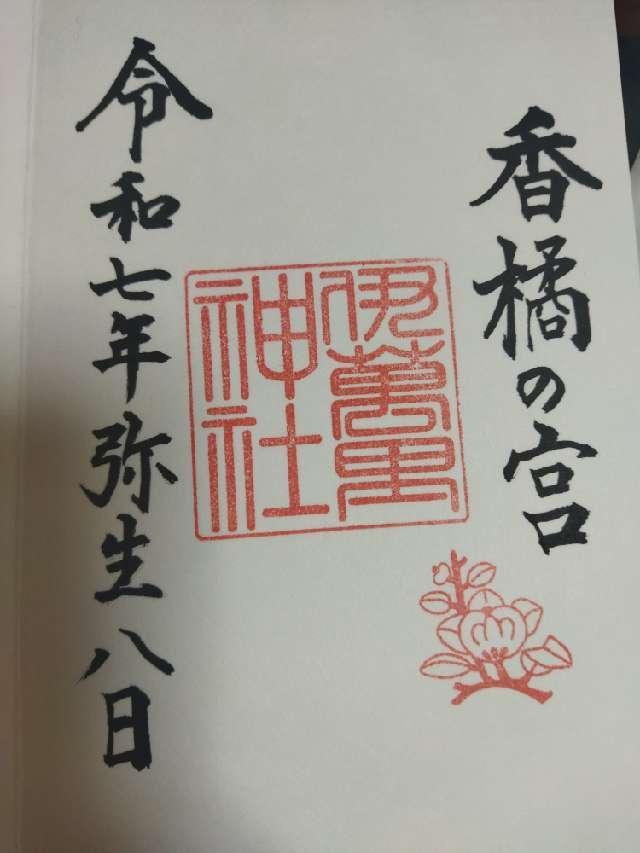 香橘の宮
伊萬里
神社
令和七年弥生八日